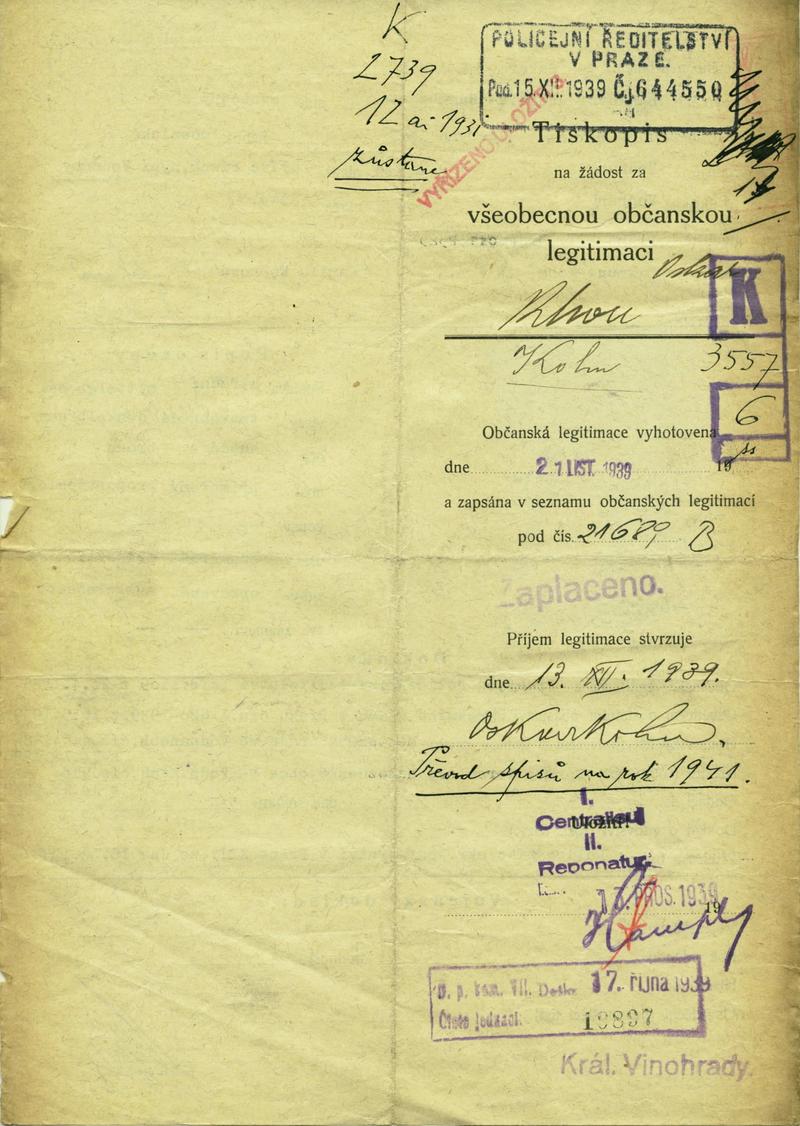 K
2739
12
zůstane
POLICEJNÍ ŘEDITELSTVÍ
V PRAZE.
15.XII.1939 Čj.644550
VYŘÍZENO
Tiskopis
na žádost za
všeobecnou občanskou
legitimaci
Oskar
K
Kohn 3557
6
Občanská legitimace vyhotovena
dne 21 LIST. 1939 19
a zapsána v seznamu občanských legitimací
pod čís. 21689 B
Zaplaceno.
Příjem legitimace stvrzuje
dne 13. XII. 1939.
Oskar Kohn
Převod spisů na rok 1941.
I.
Uložiti:
II.
PROS. 1939
19
17. října 1939
Číslo jednací. 19897
Král. Vinohrady.